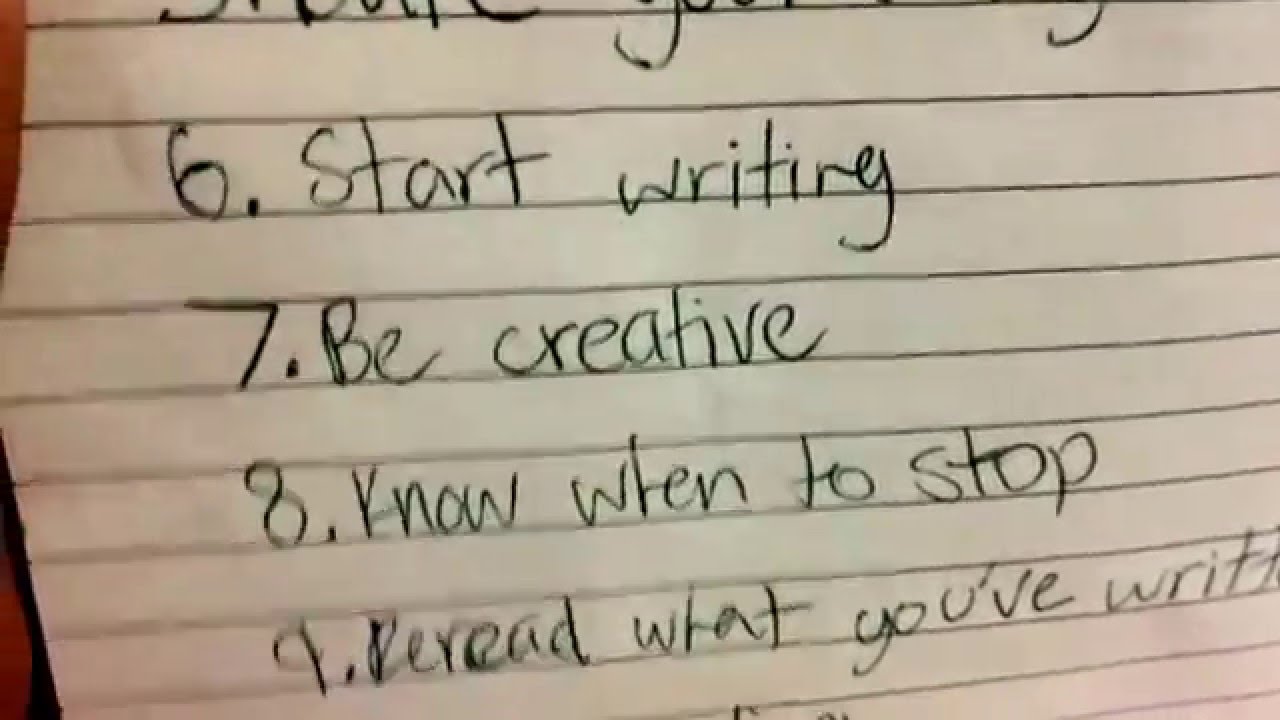 your
6. Start writing
7. Be creative
8. Know when to stop
9. Reread what you've writt